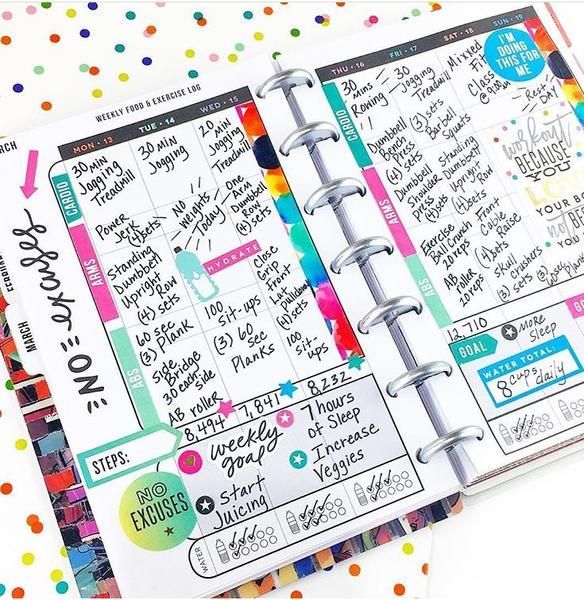 WEEKLY FOOD & EXERCISE LOG
MARCH
NO excuses
MON • 13
TUE • 14
WED • 15
CARDIO
30 MIN
Jogging
Treadmill
30 MIN
Jogging
20 MIN
Jogging
Treadmill
ARMS
Power
Jerk
(4) sets
Standing
Dumbbell
Upright
Row
(4) sets
NO
weights
Today
HYDRATE
One
Arm
Dumbbell
Row
(4) sets
Close
Grip
Lat
Front
Pulldown
(4) sets
ABS
60 sec
(3) Plank
Side
Bridge
30 each
Side
AB roller
100
Sit-ups
(3) 60
Sec
Planks
100
Sit-ups
STEPS:
8,494
7,841
8,232
NO
EXCUSES
weekly
goal
Start
Juicing
7 hours
of Sleep
Increase
Veggies
WATER
THU • 16
FRI • 17
SAT • 18
SUN • 19
CARDIO
30
Mins
Rowing
30
Jogging
Treadmill
Mixxed
Fit
Class
I'M
DOING
THIS FOR
ME
Rest
DAY
ARMS
Dumbbell
Bench
Press
(4) Sets
Dumbbell
Shoulder
Press
(4) Sets
(3) sets
Barbell
Squats
Standing
Dumbbell
Upright
Row
(4) sets
Front
Cable
Raise
(4) Sets
workout
BECAUSE
YOU
LOVE
YOUR BODY
ABS
Exercise
Ball Crunch
10 reps
AB
Roller
20 reps
Skull
crushers
(3) sets
12,710
GOAL
MORE
Sleep
WATER TOTAL:
8 cups daily